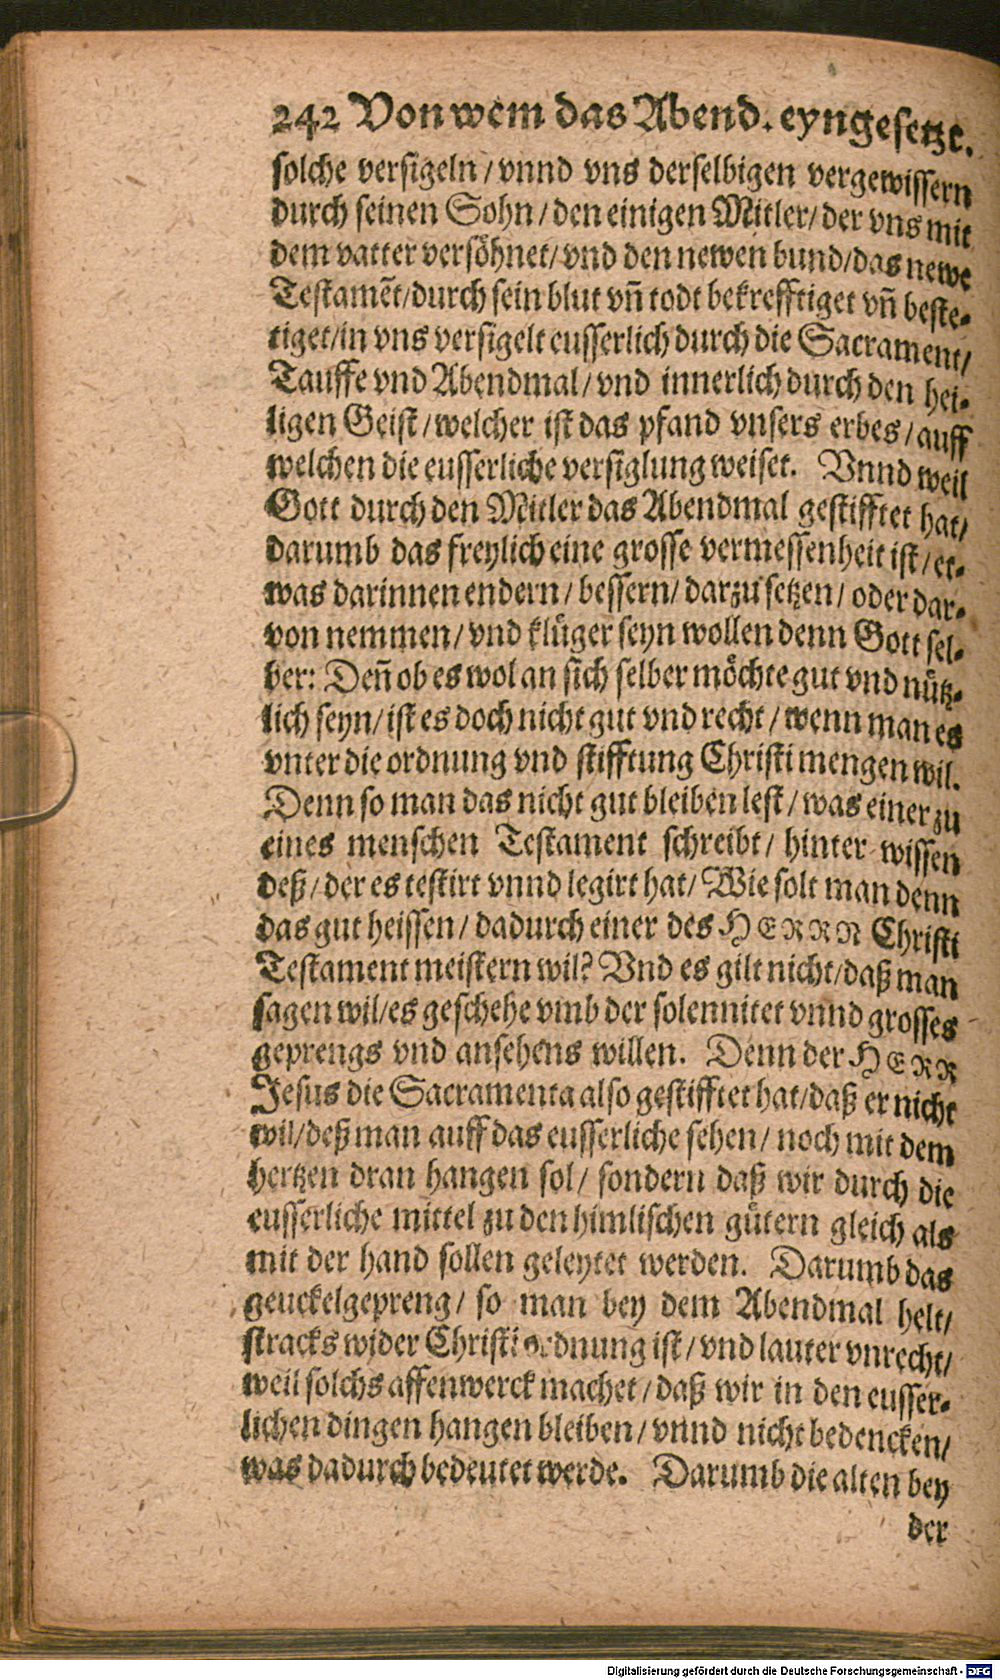 242 Von wem das Abend. eyngesetzt.
solche versigeln / vnnd vns derselbigen vergewissern
durch seinen Sohn / den einigen Mitler / der vns mit
dem vatter versöhnet / vnd den newen bund / das newe
Testamẽt / durch sein blut vñ todt bekrefftiget vñ beste-
tiget / in vns versigelt eusserlich durch die Sacrament /
Tauffe vnd Abendmal / vnd innerlich durch den hei-
ligen Geist / welcher ist das pfand vnsers erbes / auff
welchen die eusserliche versiglung weiset. Vnnd weil
Gott durch den Mitler das Abendmal gestifftet hat /
darumb das freylich eine grosse vermessenheit ist / et-
was darinnen endern / bessern / darzu setzen / oder dar-
von nemmen / vnd klüger seyn wollen denn Gott sel-
ber: Deñ ob es wol an sich selber möchte gut vnd nütz-
lich seyn / ist es doch nicht gut vnd recht / wenn man es
vnter die ordnung vnd stifftung Christi mengen wil.
Denn so man das nicht gut bleiben lest / was einer zu
eines menschen Testament schreibt / hinter wissen
deß / der es testirt vnnd legirt hat / Wie solt man denn
das gut heissen / dadurch einer des HERRN Christi
Testament meistern wil? Vnd es gilt nicht / daß man
sagen wil / es geschehe vmb der solennitet vnnd grosses
geprengs vnd ansehens willen. Denn der HERR
Jesus die Sacramenta also gestifftet hat / daß er nicht
wil / deß man auff das eusserliche sehen / noch mit dem
hertzen dran hangen sol / sondern daß wir durch die
eusserliche mittel zu den himlischen gütern gleich als
mit der hand sollen geleytet werden. Darumb das
geuckelgepreng / so man bey dem Abendmal helt /
stracks wider Christi ordnung ist / vnd lauter vnrecht /
weil solchs affenwerck machet / daß wir in den eusser-
lichen dingen hangen bleiben / vnnd nicht bedencken /
was dadurch bedeutet werde. Darumb die alten bey
der
Digitalisierung gefördert durch die Deutsche Forschungsgemeinschaft - DFG